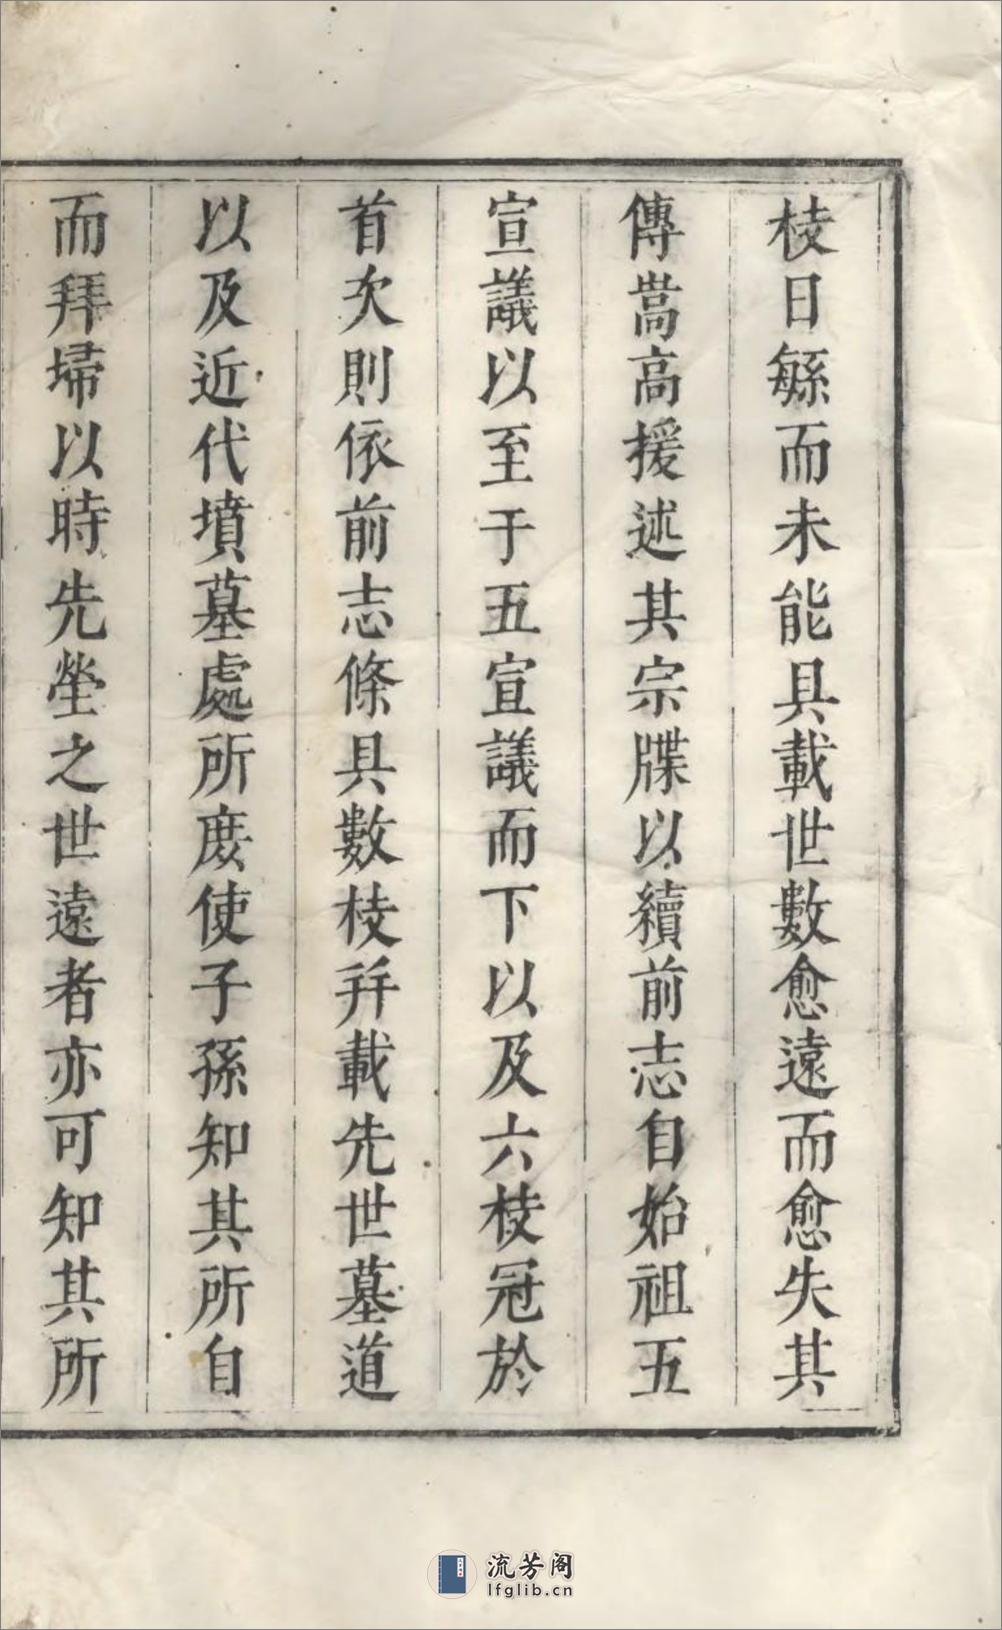 枝日繇而未能具載世數愈遠而愈失其
傳嵩高援述其宗牒以續前志自始祖五
宣議以至于五宣議而下以及六枝冠於
首次則依前志條具數枝幷載先世墓道
以及近代墳墓處所庶使子孫知其所自
而拜埽以時先塋之世遠者亦可知其所
流芳阁
lfglib.cn